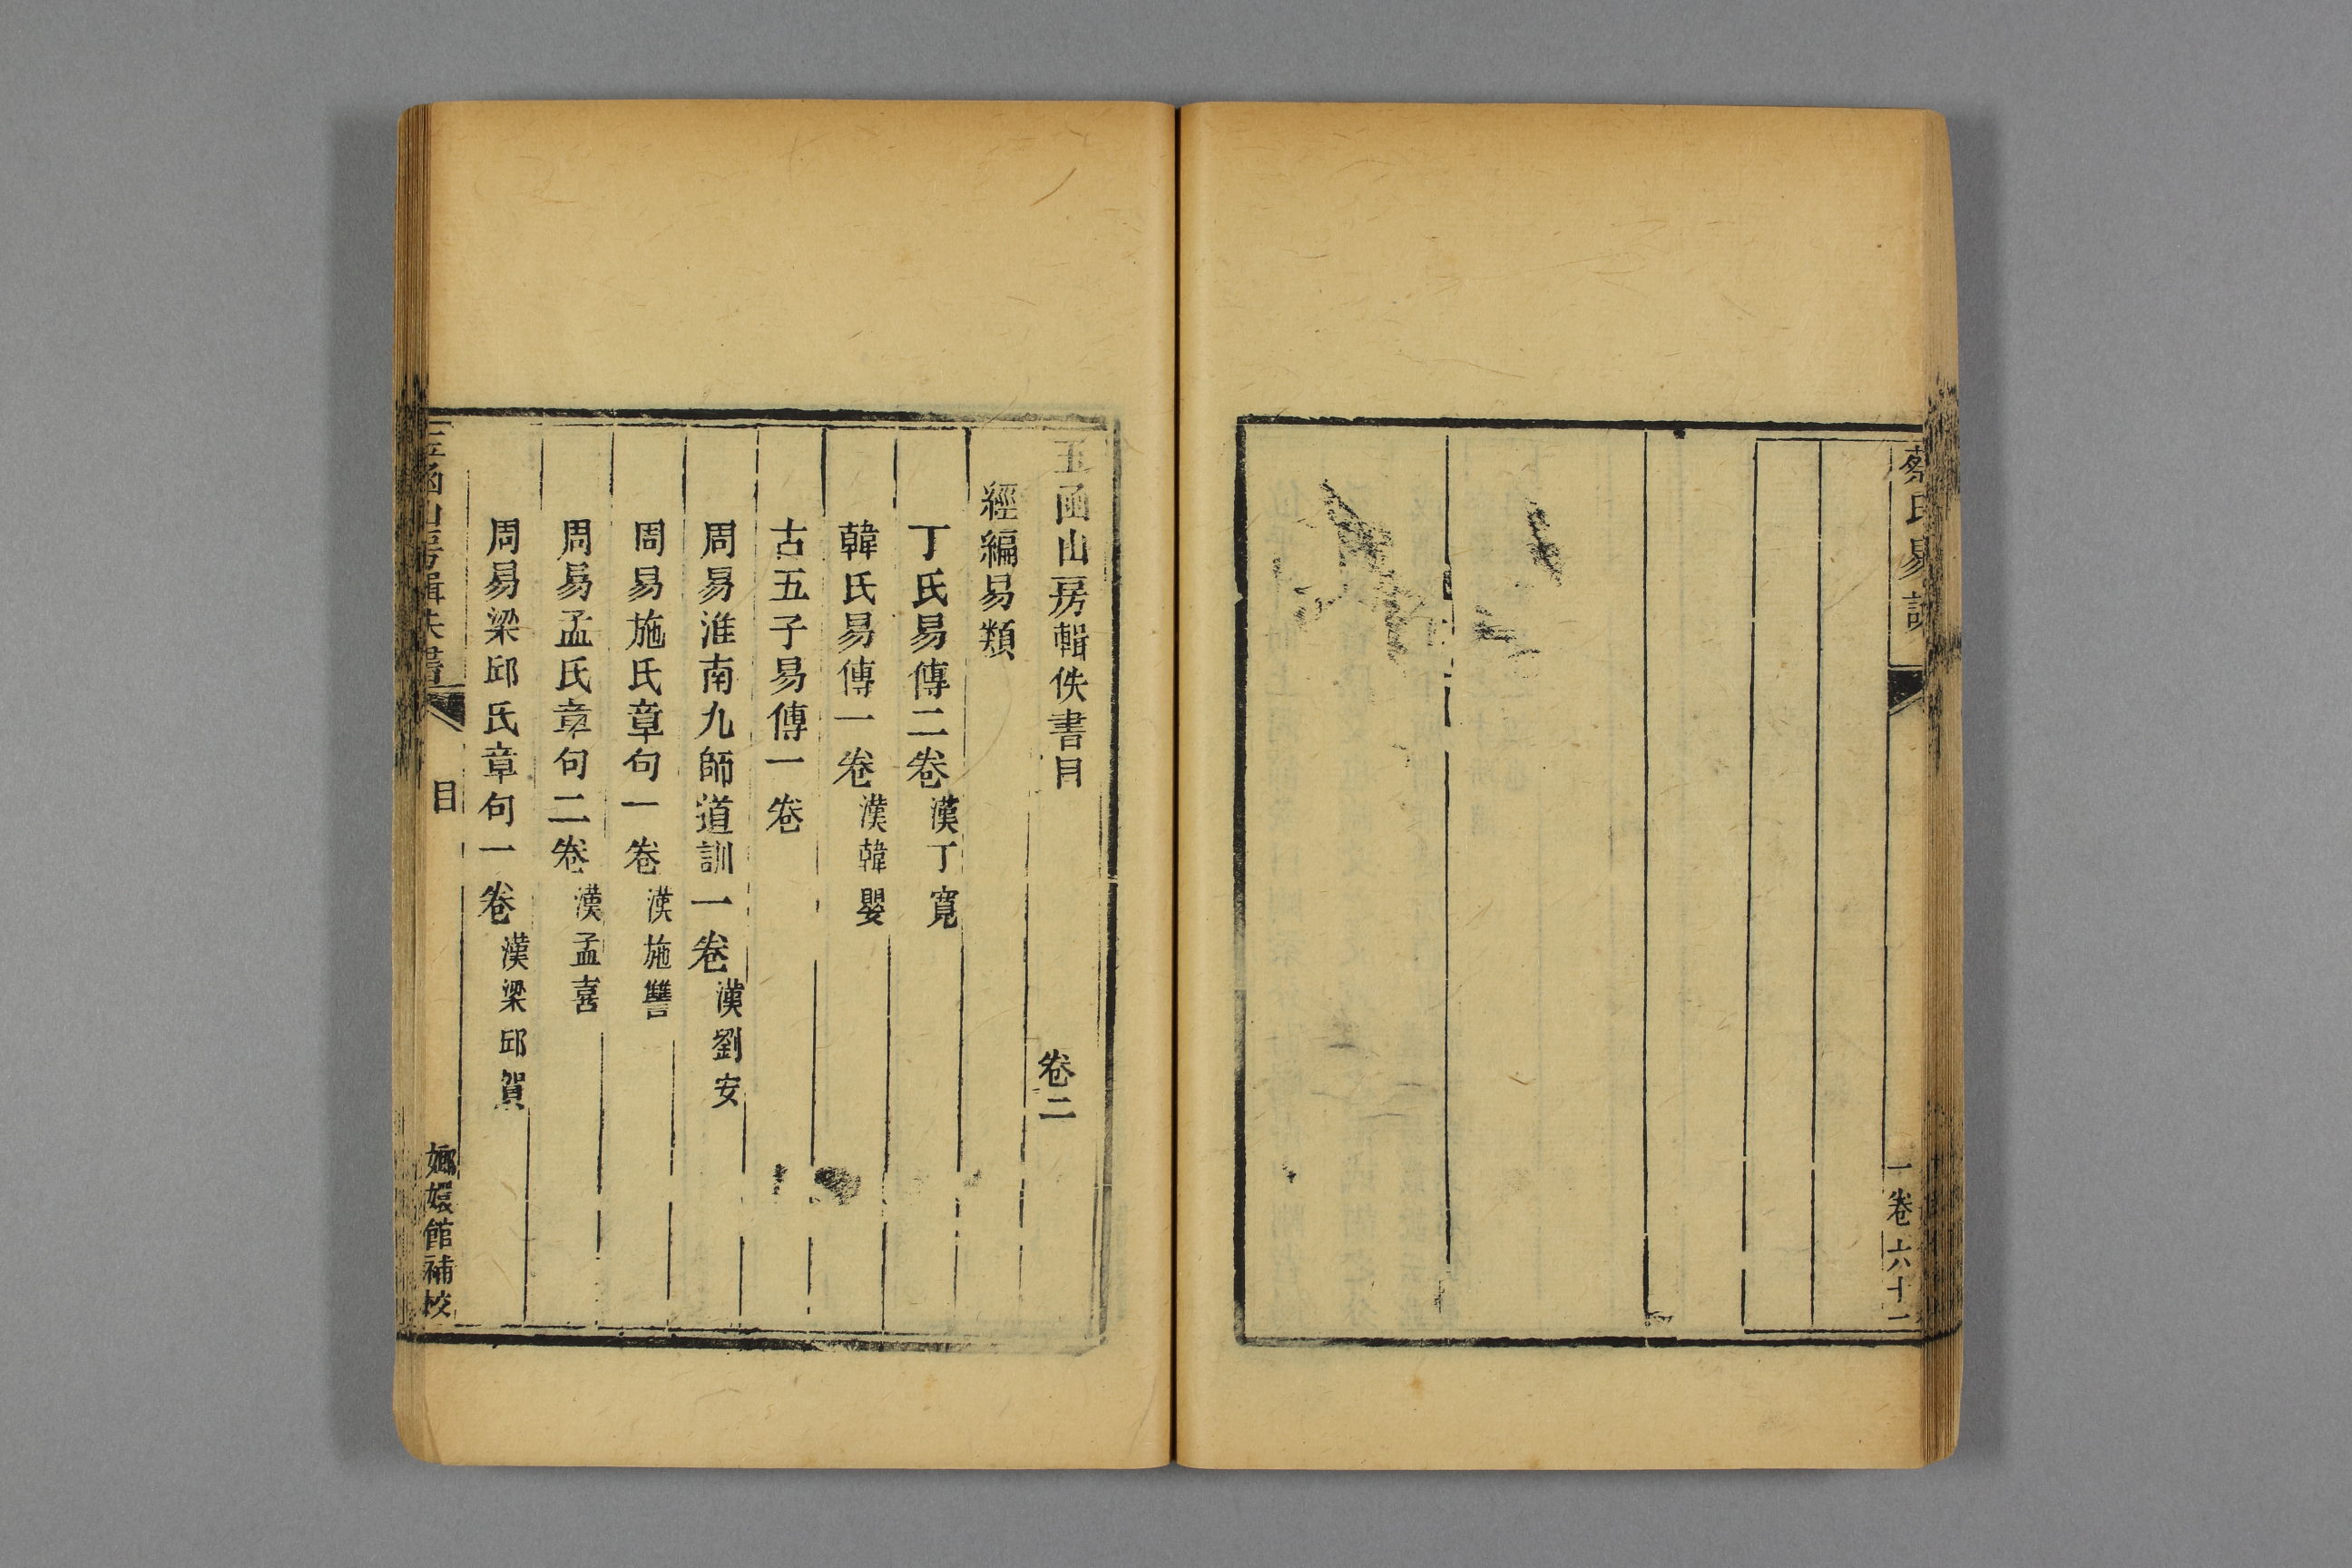 蔡氏易說
一卷 六十二
玉函山房輯佚書目 卷二
經編易類
丁氏易傳二卷 漢丁寬
韓氏易傳一卷 漢韓嬰
古五子易傳一卷
周易淮南九師道訓一卷 漢劉安
周易施氏章句一卷 漢施讐
周易孟氏章句二卷 漢孟喜
周易梁邱氏章句一卷 漢梁邱賀
玉函山房輯佚書 目 嫏嬛館補校